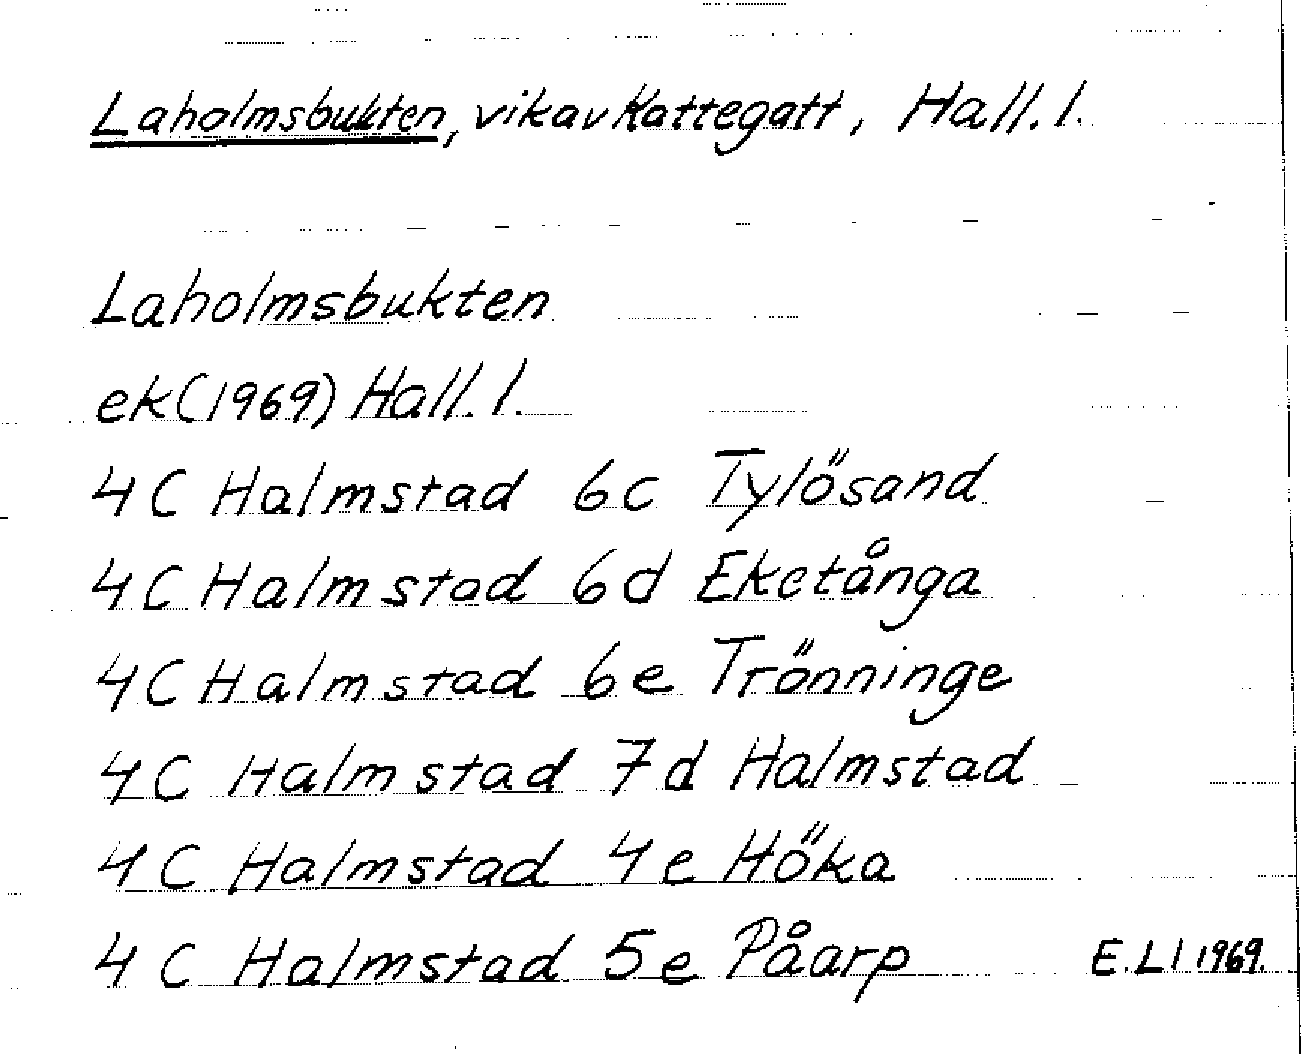 Laholmsbukten, vik av Kattegatt, Hall. l.
Laholmsbukten
ek (1969) Hall. l.
4 C Halmstad 6 c Tylösand
4 C Halmstad 6 d Eketånga
4 C Halmstad 6 e Trönninge
4 C Halmstad 7 d Halmstad
4 C Halmstad 4 e Höka
4 C Halmstad 5 e Påarp E. LI 1969.